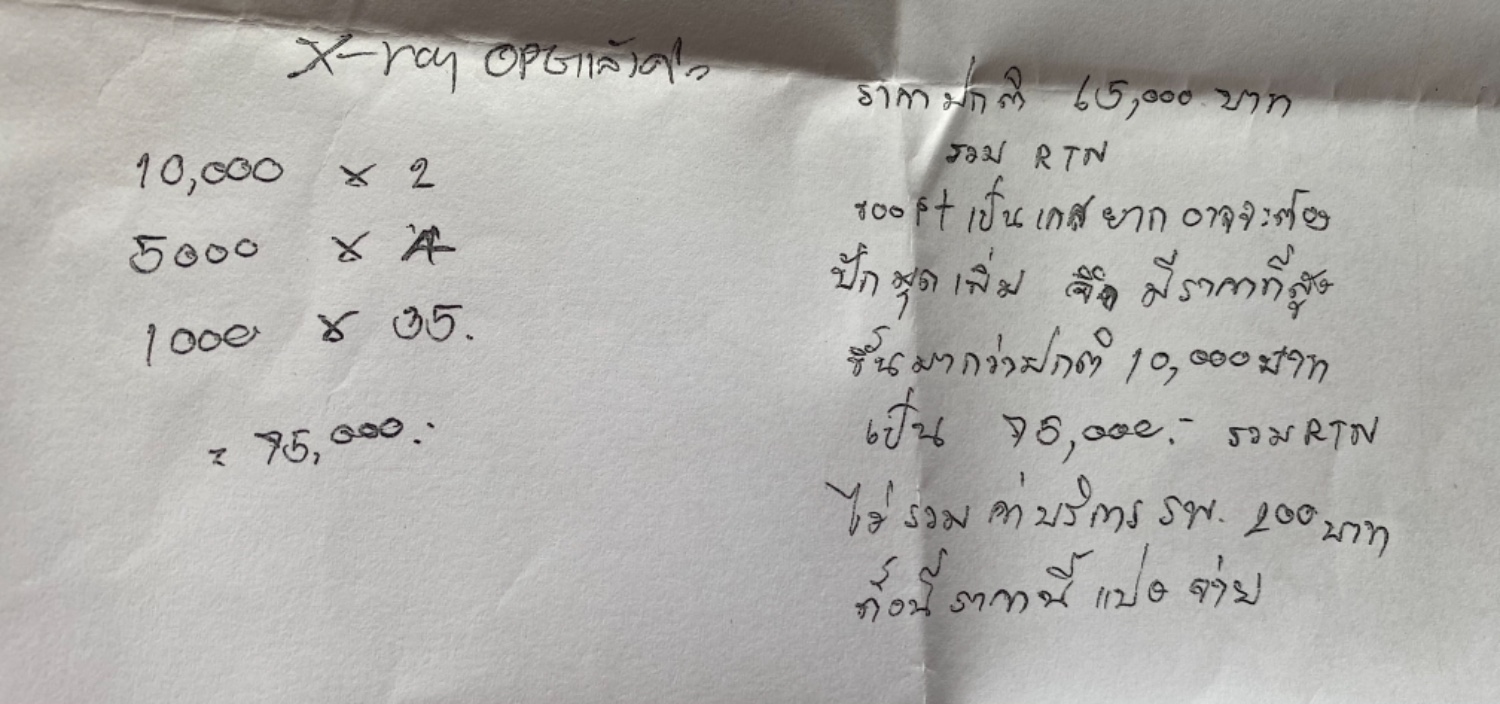 X-ray OPG แล้ว
10,000 x 2
5000 x 4
1000 x 35.
= 75,000.-
ราคาปกติ 65,000 บาท
รวม RTN
ของ Pt เป็นเคสยาก อาจจะต้อง
ปักมุดเพิ่ม จึง มีราคาที่สูง
ขึ้นมากว่าปกติ 10,000 บาท
เป็น 75,000.- รวม RTN
ไม่รวม ค่าบริการ รพ. 200 บาท
ทั้งนี้ ราคานี้ แบ่ง จ่าย